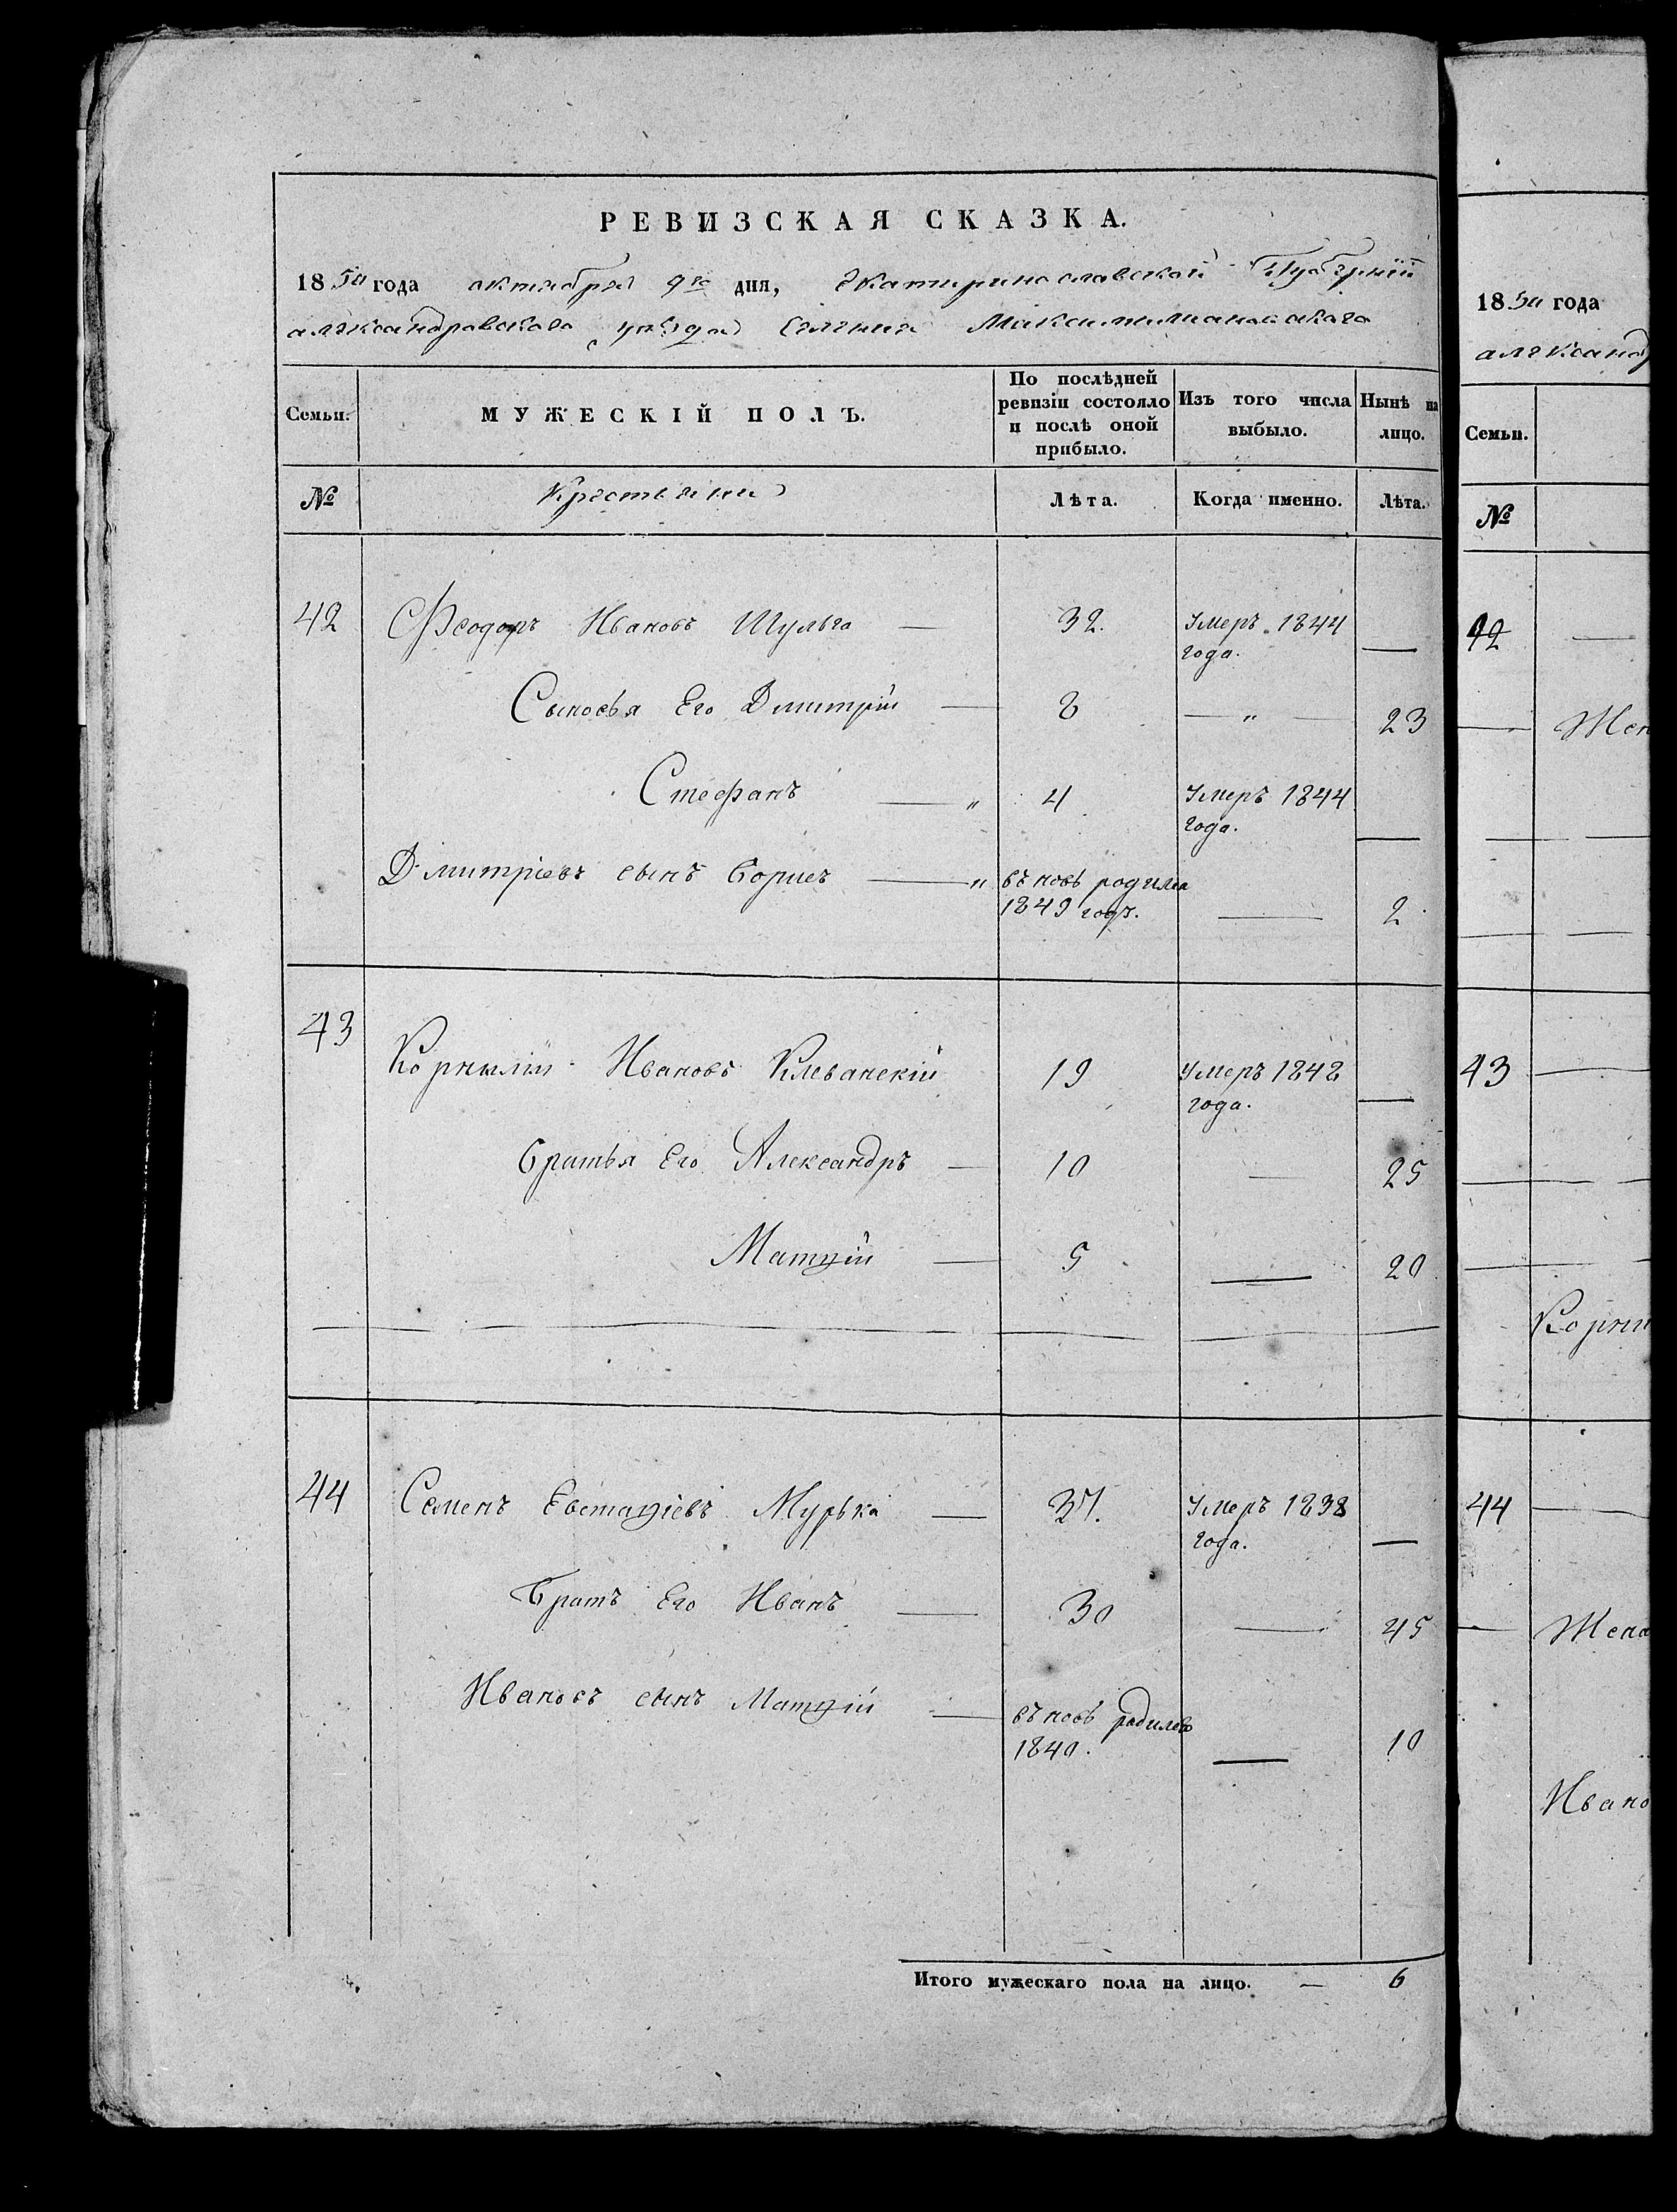 РЕВИЗСКАЯ СКАЗКА.
1850 года октября 9го дня, Екатеринославской Губернии
александровского уезда Селения Максимилиановскаго
Семьи. МУЖЕСКІЙ ПОЛЪ. По послѣдней ревизіи состояло и послѣ оной прибыло. Изъ того числа выбыло. Нынѣ на лицо.
№ Крестьяни Лѣта. Когда именно. Лѣта.
42 Феодоръ Ивановъ Шульга — 32. Умеръ 1844
года. —
Сыновья Его Дмитрій — 8 — „ — 23
Стефанъ — „ 4 Умеръ 1844
года. —
Дмитріевъ сынъ Борисъ — „ въ новь родился
1849 годъ. — 2
43 Корнилій Ивановъ Клеванскій 19 Умеръ 1848
года. —
Братья Его Александръ — 10 — 25
Матѳій — 5 — 20
44 Семенъ Евстаѳіевъ Мурька — 37. Умеръ 1838
года. —
Братъ Его Иванъ — 30 — 45
Ивановъ сынъ Матѳій — въ новь родился
1840. — 10
Итого мужескаго пола на лицо. — 6
1850 года
александ
Семьи.
№
42 —
— Жен
43 —
Корни
44 —
— Жена
Ивано